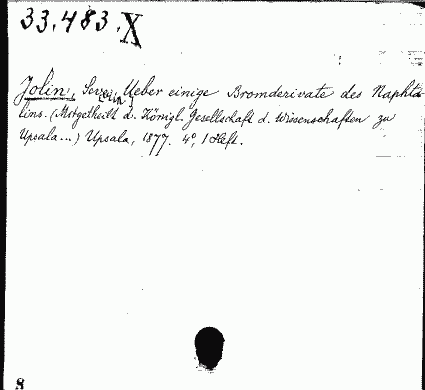 33.483.X
Jolin, Severin, Ueber einige Bromderivate des Naphta-
lins. (Mitgetheilt d. Königl. Gesellschaft d. Wissenschaften zu
Upsala...) Upsala, 1877. 4°, 1 Heft.
8